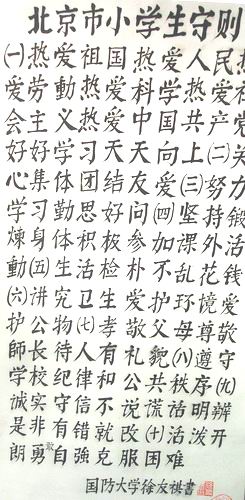 北京市小学生守则
㈠热爱祖国热爱人民热
爱劳動热爱科学热爱社
会主义热爱中国共产党
好好学习天天向上㈡关
心集体团结友爱㈢努力
学习勤思好问㈣坚持锻
煉身体积极参加課外活
動㈤生活检朴不乱花钱
㈥讲究卫生爱护环境爱
护公物㈦孝敬父母尊敬
師長待人有礼貌㈧遵守
学校纪律和公共秩序㈨
诚实守信不说谎话明辯
是非有错就改㈩活泼开
朗勇敢自強克服困难
国防大学徐友祺書